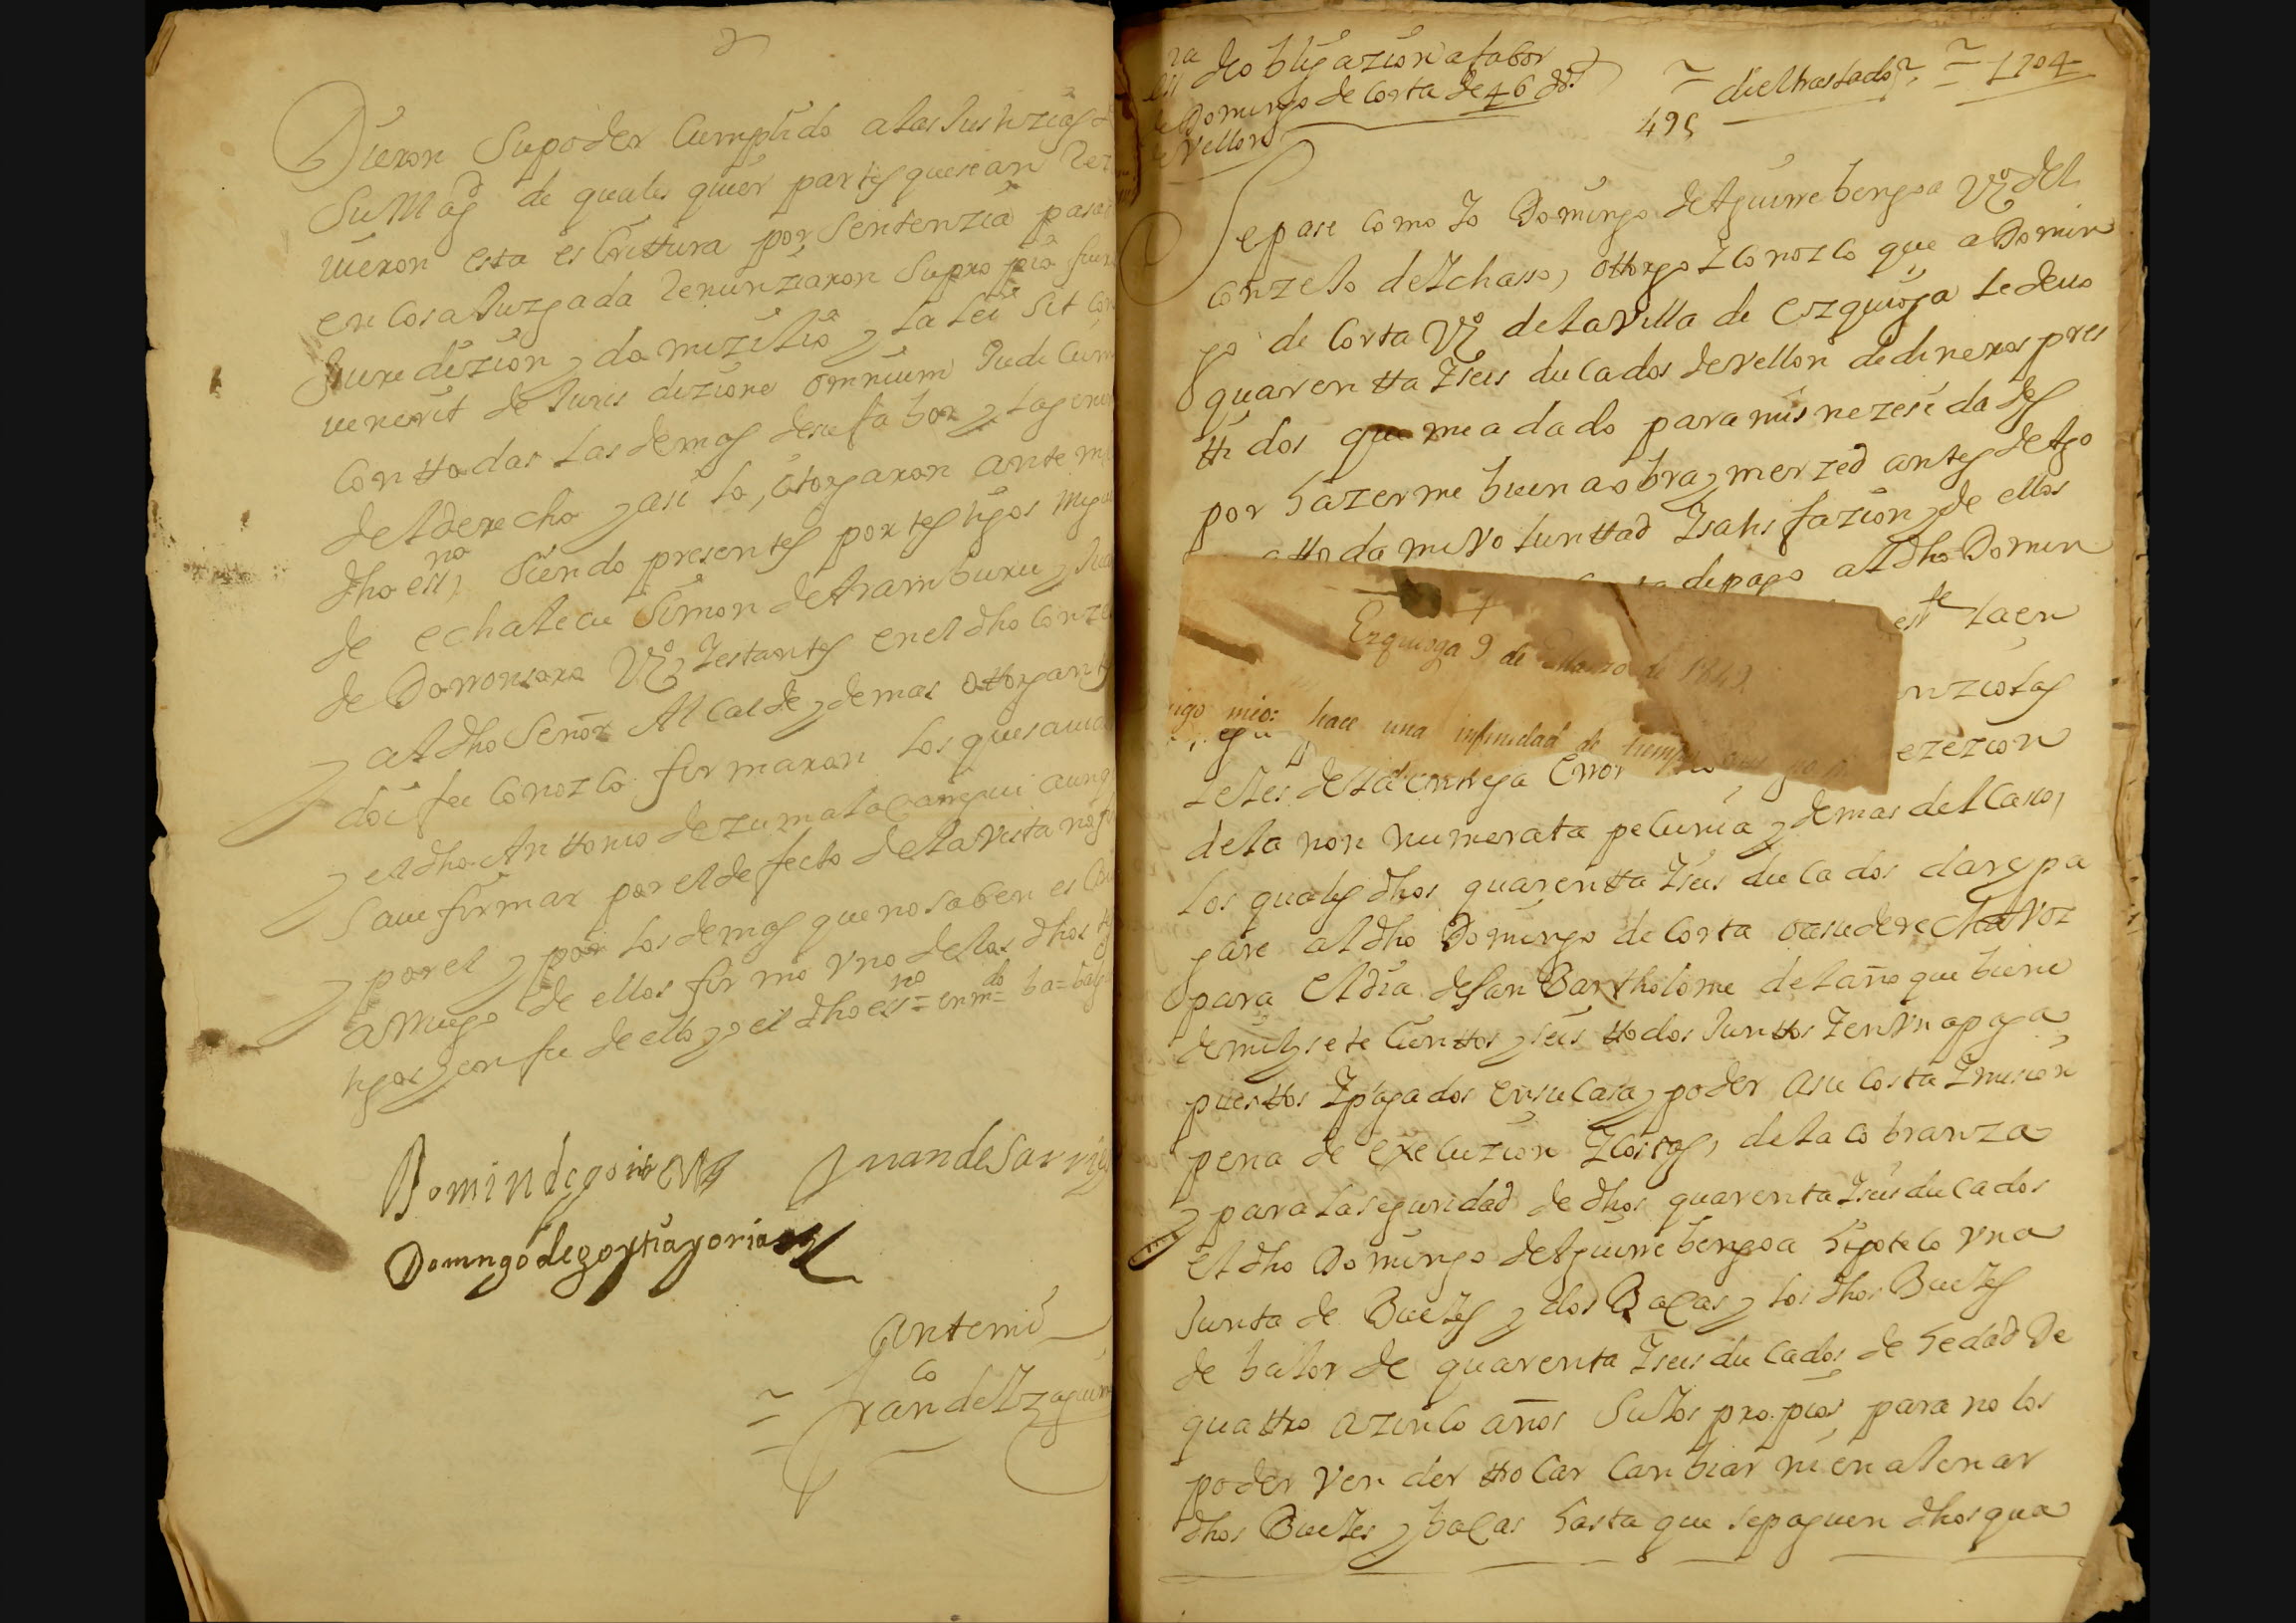 Dieron Supoder Cumplido alas Justizias
Su Magd de quales quier partes que sean
uieron esta escrittura por Sentenzia pasa
en Cosa Juzgada Renunziaron Supropio fue
Juredizion, domizilio, la lei Sit con
uenerit de Juris dizione omnium Judicum
Con ttodas las demas de su fabor, la gen
del derecho, asi lo, otorgaron ante mi
dho essno, Siendo presentes por testigos Mig
de echalecu Simon de Aramburu, Jua
de Doronsoro Vos, Yestantes en el dho Conze
, al dho Señor Alcalde, demas ottorgantes
doi fee Conozco firmaron los que sauia
, el dho Anttonio de zumalacarregui aunq
Saue firmar por el defecto de la Vista no
, por el, por los demas que no saben es
a Ruego de ellos firmo Vno de los dhos
tigos, en fee de ello, o el dho essno = enmdo = ba =
Domin de goi
Juan de Sarri
Domingo de gorttiayoria
Antemi
= Franco de Yzaguirr
de obligazion a fabor
Domingo de Corta de 46 ds
Vellon
= di el traslado = 1704
495
Sepase Como Yo Domingo de Aguirrebengoa Vo del
Conzejo de Ychasso, ottorgo Y Conozco que a Domin
go de Corta Vo de la Villa de ezquioga le deuo
quarentta Y seis ducados de Vellon de dineros pres
ttidos que me a dado para mis nezesidades
por hazerme buena obra, merzed antes de Ago
a ttoda mi Volunttad Y satisfazion, de ellos
de pago al dho Domin
la en
Ezquioga 9 de Marzo de 1849
nzio las
igo mio: hace una infinidad de tiempo que
ezezion
leies de la entrega Error
de la non numerata pecunia, demas del Caso,
los quales dhos quarentta Y seis ducados dare, pa
gare al dho Domingo de Corta o a su derecha Voz
para el dia de San Bartholome del año que biene
de mil, sete Cienttos, seis ttodos Junttos Y en Vna paga
puesttos Y pagados en su Casa, poder a su Costa Y mision
pena de execuzion Y Costas, de la cobranza
, para la seguridad de dhos quarenta Y seis ducados
el dho Domingo de Aguirrebengoa hipoteco Vna
Junta de Bueyes, dos Bacas, los dhos Bueyes
de balor de quarenta Y seis ducados de hedad de
quattro a zinco años Suios propios para no los
poder Vender ttrocar Canbiar ni enalenar
dhos Bueyes, bacas hasta que se paguen dhos qua